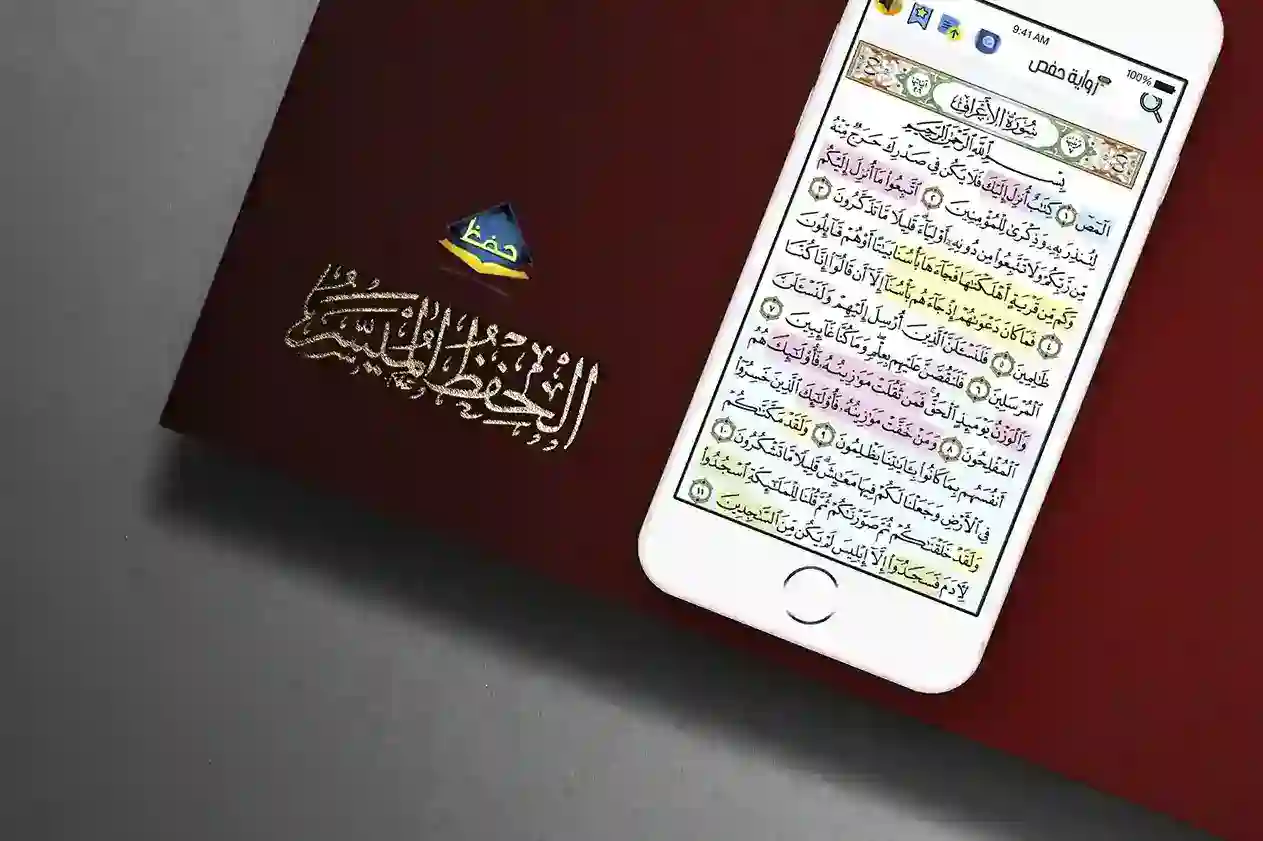 9:41 AM
100%
رواية حفص
سُورَةُ الأَعْرَافِ
بِسْمِ ٱللَّهِ ٱلرَّحْمَٰنِ ٱلرَّحِيمِ
الٓمٓصٓ ١ كِتَٰبٌ أُنزِلَ إِلَيْكَ فَلَا يَكُن فِى صَدْرِكَ حَرَجٌ مِّنْهُ
لِتُنذِرَ بِهِۦ وَذِكْرَىٰ لِلْمُؤْمِنِينَ ٢ ٱتَّبِعُوا۟ مَآ أُنزِلَ إِلَيْكُم
مِّن رَّبِّكُمْ وَلَا تَتَّبِعُوا۟ مِن دُونِهِۦٓ أَوْلِيَآءَ قَلِيلًا مَّا تَذَكَّرُونَ ٣
وَكَم مِّن قَرْيَةٍ أَهْلَكْنَٰهَا فَجَآءَهَا بَأْسُنَا بَيَٰتًا أَوْ هُمْ قَآئِلُونَ
٤ فَمَا كَانَ دَعْوَىٰهُمْ إِذْ جَآءَهُم بَأْسُنَآ إِلَّآ أَن قَالُوٓا۟ إِنَّا كُنَّا
ظَٰلِمِينَ ٥ فَلَنَسْـَٔلَنَّ ٱلَّذِينَ أُرْسِلَ إِلَيْهِمْ وَلَنَسْـَٔلَنَّ
ٱلْمُرْسَلِينَ ٦ فَلَنَقُصَّنَّ عَلَيْهِم بِعِلْمٍ وَمَا كُنَّا غَآئِبِينَ ٧
وَٱلْوَزْنُ يَوْمَئِذٍ ٱلْحَقُّ فَمَن ثَقُلَتْ مَوَٰزِينُهُۥ فَأُو۟لَٰٓئِكَ هُمُ
ٱلْمُفْلِحُونَ ٨ وَمَنْ خَفَّتْ مَوَٰزِينُهُۥ فَأُو۟لَٰٓئِكَ ٱلَّذِينَ خَسِرُوٓا۟
أَنفُسَهُم بِمَا كَانُوا۟ بِـَٔايَٰتِنَا يَظْلِمُونَ ٩ وَلَقَدْ مَكَّنَّٰكُمْ
فِى ٱلْأَرْضِ وَجَعَلْنَا لَكُمْ فِيهَا مَعَٰيِشَ قَلِيلًا مَّا تَشْكُرُونَ ١٠
وَلَقَدْ خَلَقْنَٰكُمْ ثُمَّ صَوَّرْنَٰكُمْ ثُمَّ قُلْنَا لِلْمَلَٰٓئِكَةِ ٱسْجُدُوا۟
لِـَٔادَمَ فَسَجَدُوٓا۟ إِلَّآ إِبْلِيسَ لَمْ يَكُن مِّنَ ٱلسَّٰجِدِينَ ١١
حفظ
الحفظ الميسر